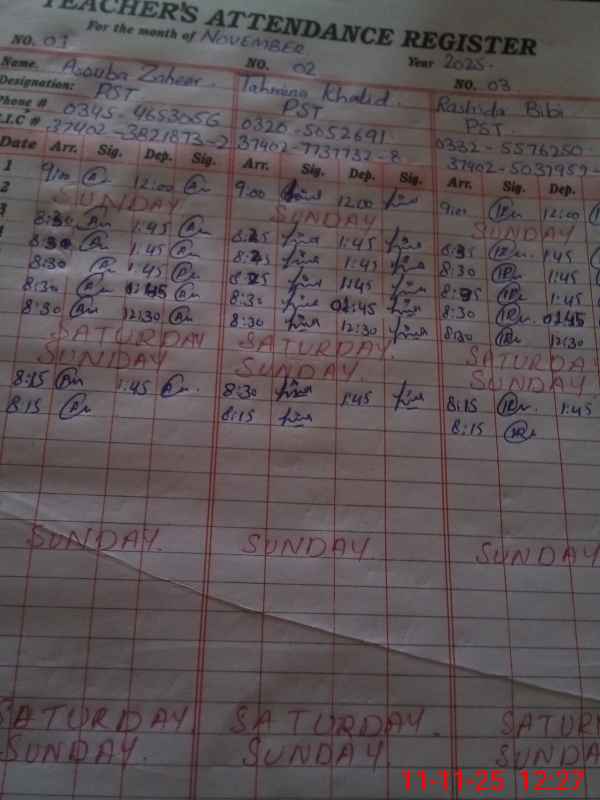 TEACHER'S ATTENDANCE REGISTER
For the month of NOVEMBER Year 2025
NO. 01 NO. 02 NO. 03
Name. Zaheer Tahmina Khalid Rashida Bibi
Designation: PST PST PST
Phone # 0345-4653056 0320-5052691 0332-5576250
37402-3821873-2 37402-7737732-8 37402-5037959-
Date Arr. Sig. Dep. Sig. Arr. Sig. Dep. Sig. Arr. Sig. Dep.
1 9:00 12:00 9:00 12:00 9:00 12:00
2 SUNDAY SUNDAY SUNDAY
3 8:30 1:45 8:25 1:45 8:35 1:45
8:30 1:45 8:25 1:45 8:30 1:45
8:30 1:45 8:25 1:45 8:35 1:45
8:30 01:45 8:30 01:45 8:30 01:45
8:30 12:30 8:30 12:30 8:30 12:30
SATURDAY SATURDAY. SATURDA
SUNDAY SUNDAY. SUNDAY
8:15 1:45 8:30 1:45 8:15 1:45
8:15 8:15 8:15
SUNDAY. SUNDAY. SUNDAY
SATURDAY. SATURDAY. SATUR
SUNDAY. SUNDAY. SUNDA
11-11-25 12:27